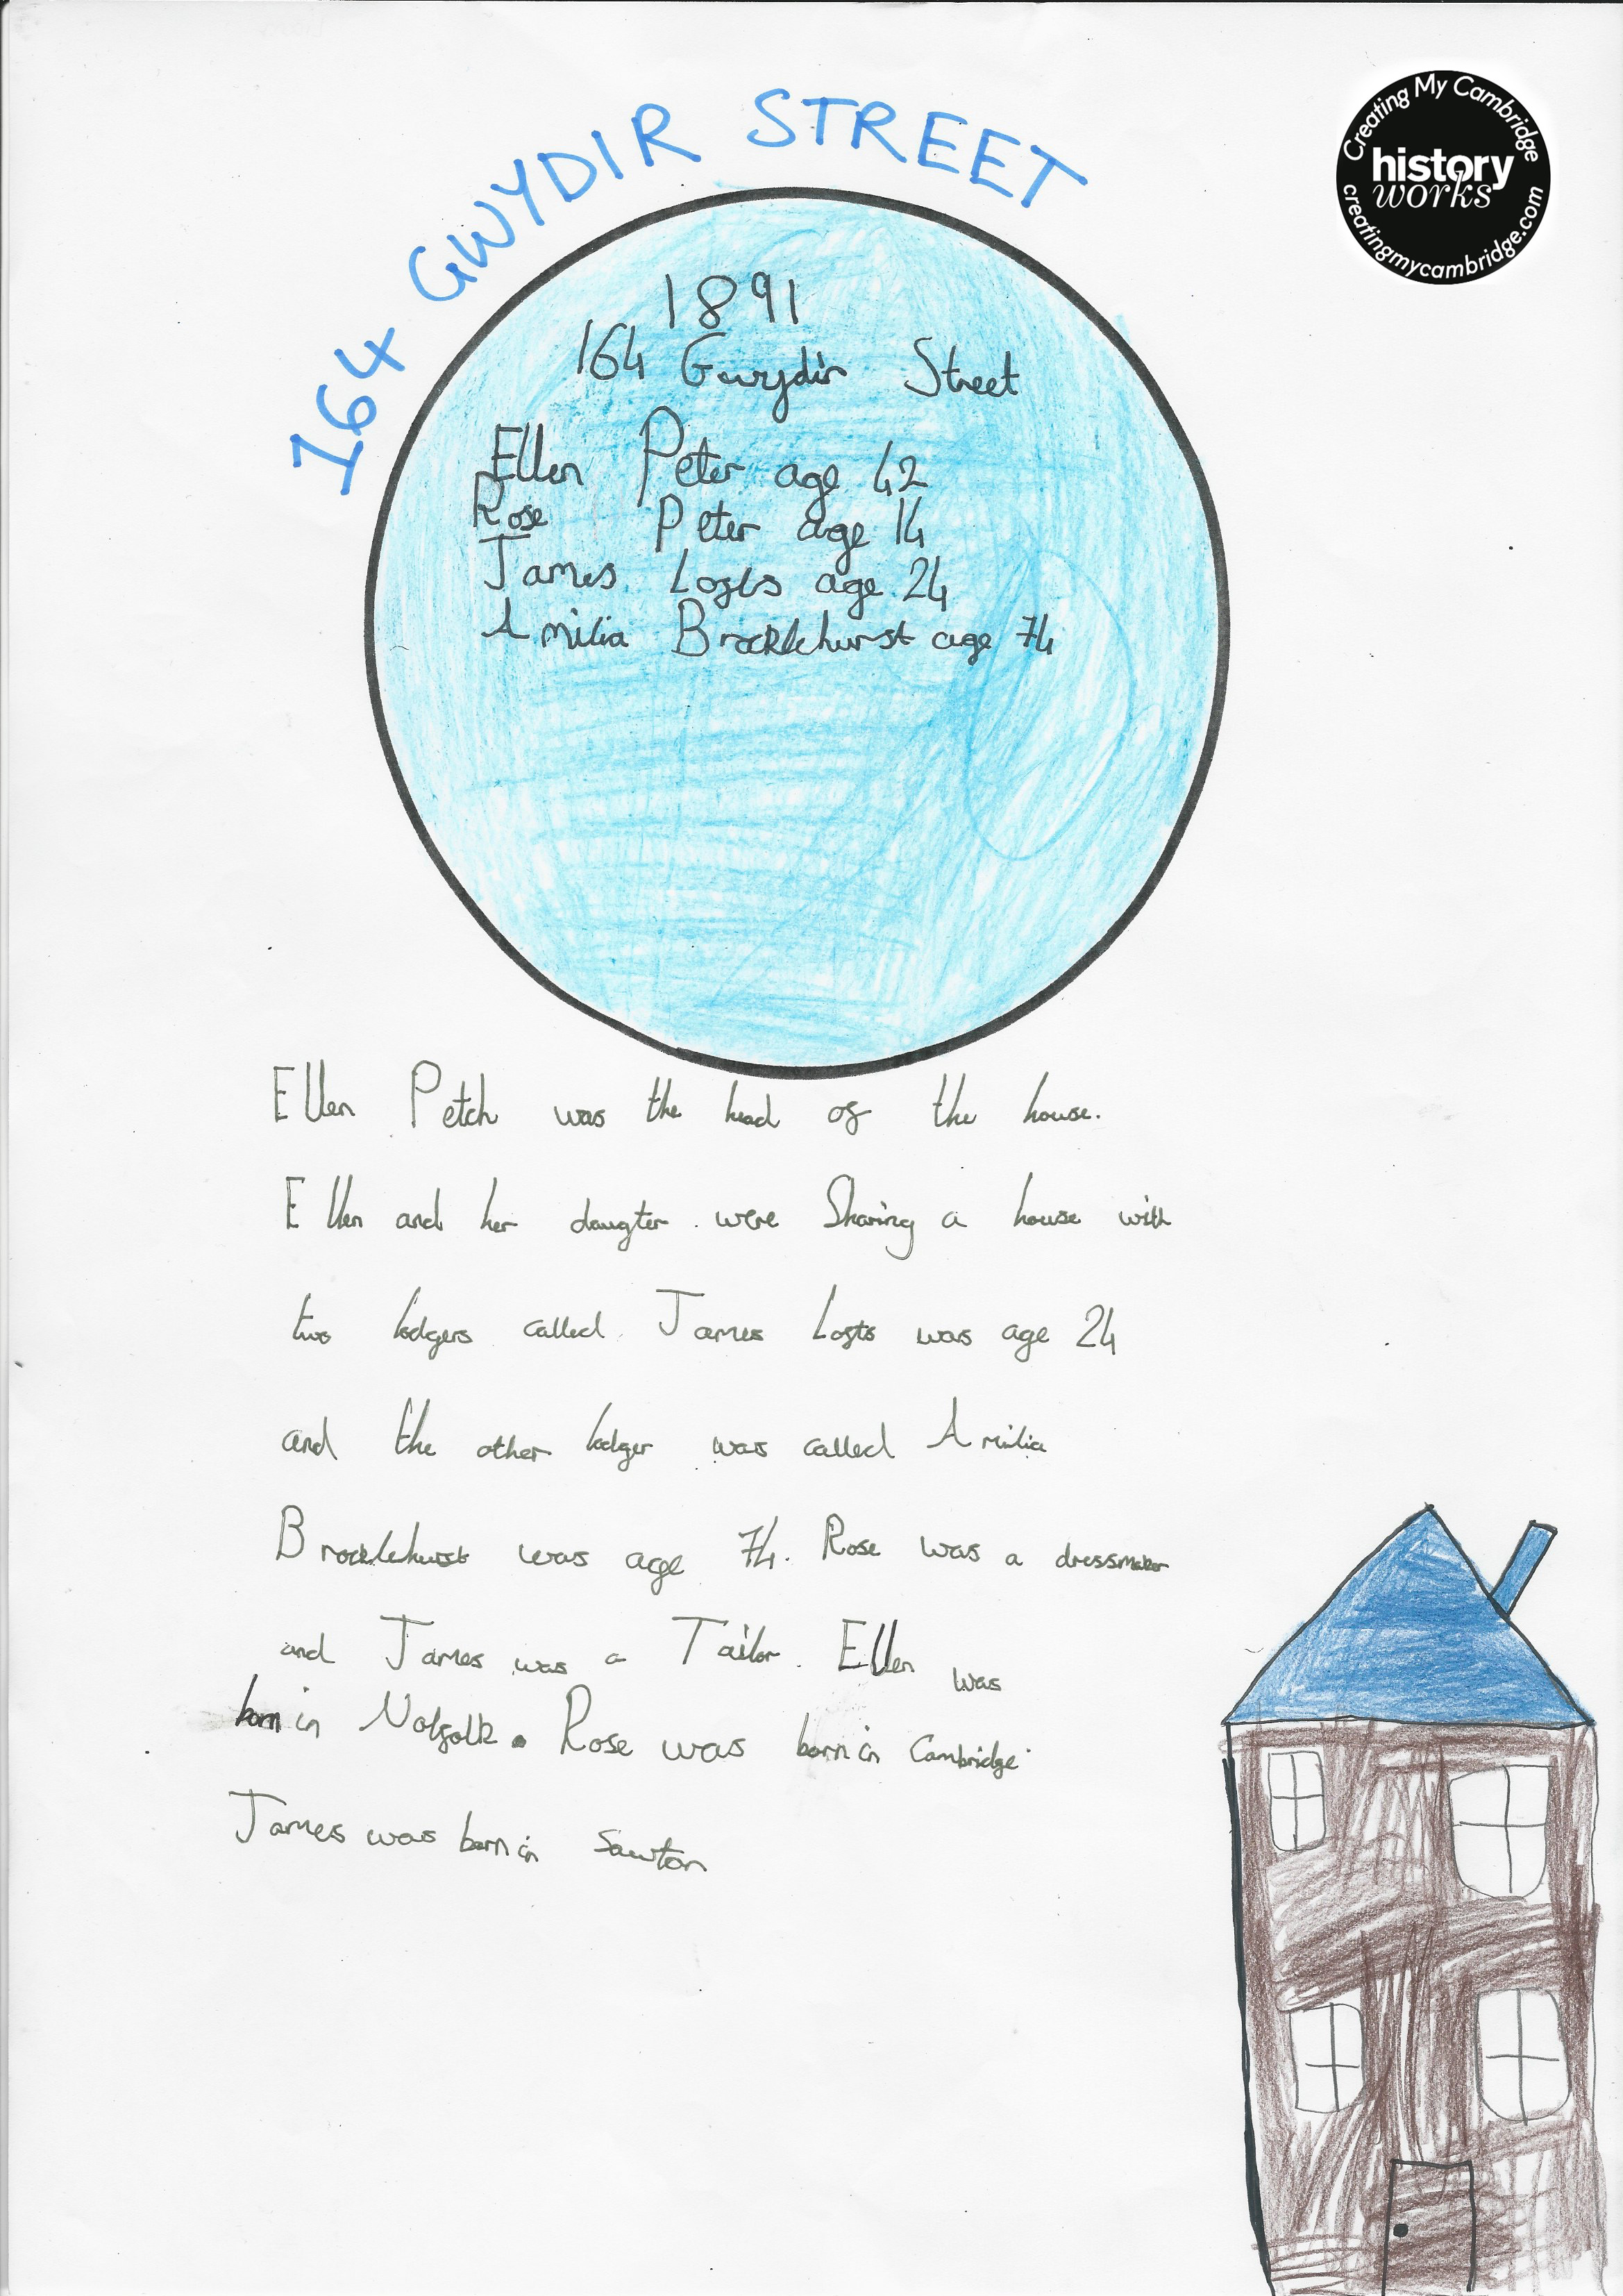 164 GWYDIR STREET
Creating My Cambridge
history
works
creatingmycambridge.com
1891
164 Gwydir Street
Ellen Peter age 42
Rose Peter age 14
James Lofts age 24
Amilia Brocklehurst age 74
Ellen Petch was the head of the house.
Ellen and her daugter were Sharing a house with
two lodgers called James Lofts was age 24
and the other lodger was called Amilia
Brocklehurst was age 74. Rose was a dressmaker
and James was a Tailor. Ellen was
born in Nolfolk. Rose was born in Cambridge.
James was born in Sawton